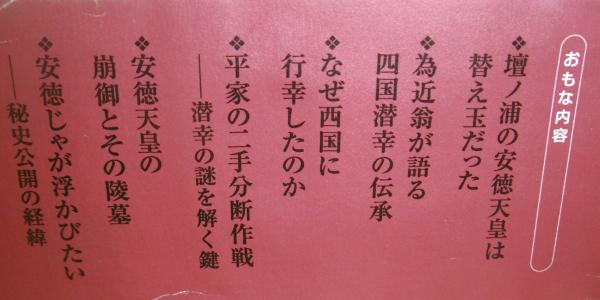 おもな内容
❖壇ノ浦の安徳天皇は
替え玉だった
❖為近翁が語る
四国潜幸の伝承
❖なぜ西国に
行幸したのか
❖平家の二手分断作戦
――潜幸の謎を解く鍵
❖安徳天皇の
崩御とその陵墓
❖安徳じゃが浮かびたい
――秘史公開の経緯